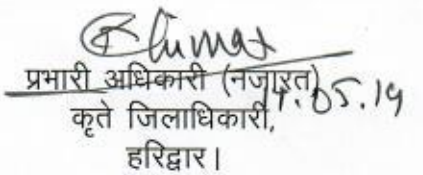 प्रभारी अधिकारी (नजारत)
14.05.19
कृते जिलाधिकारी,
हरिद्वार।